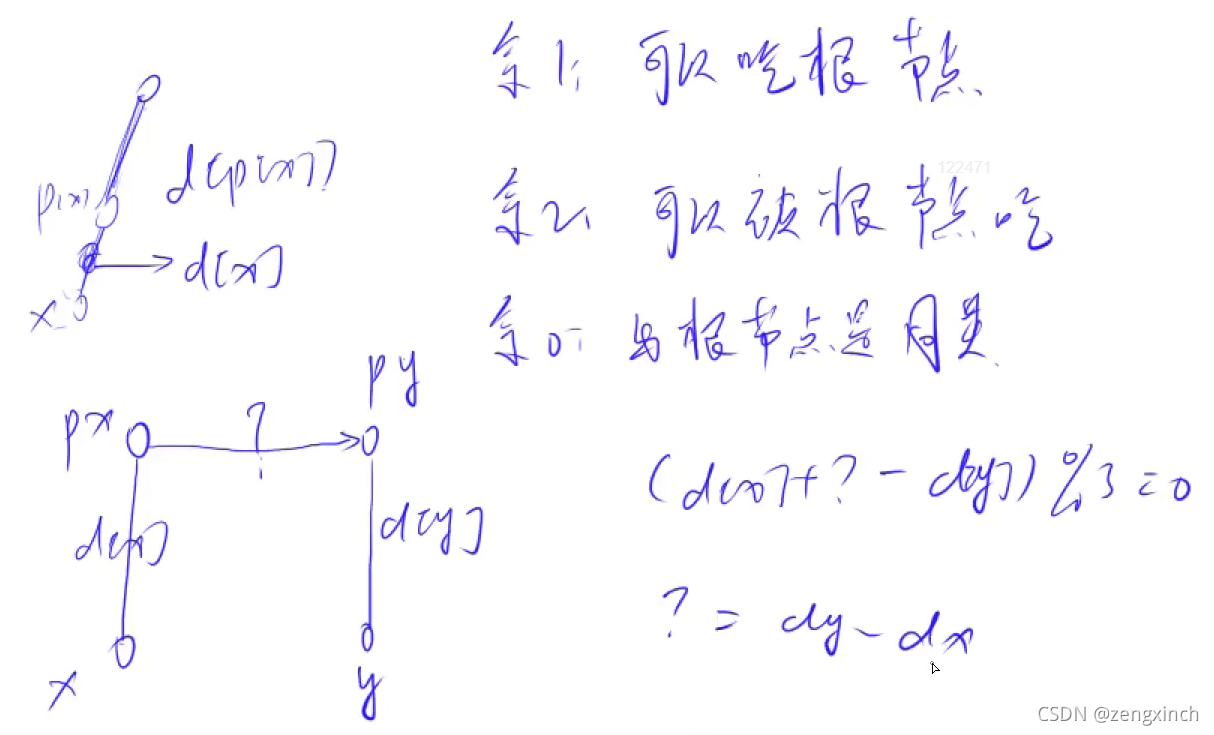 余1: 可以吃根节点
122471
余2: 可以被根节点吃
余0: 与根节点是同类
p[x]
d[p[x]]
d[x]
x
px
?
py
d[x]
d[y]
x
y
(d[x]+?-d[y])%3=0
?=dy-dx
CSDN @zengxinch